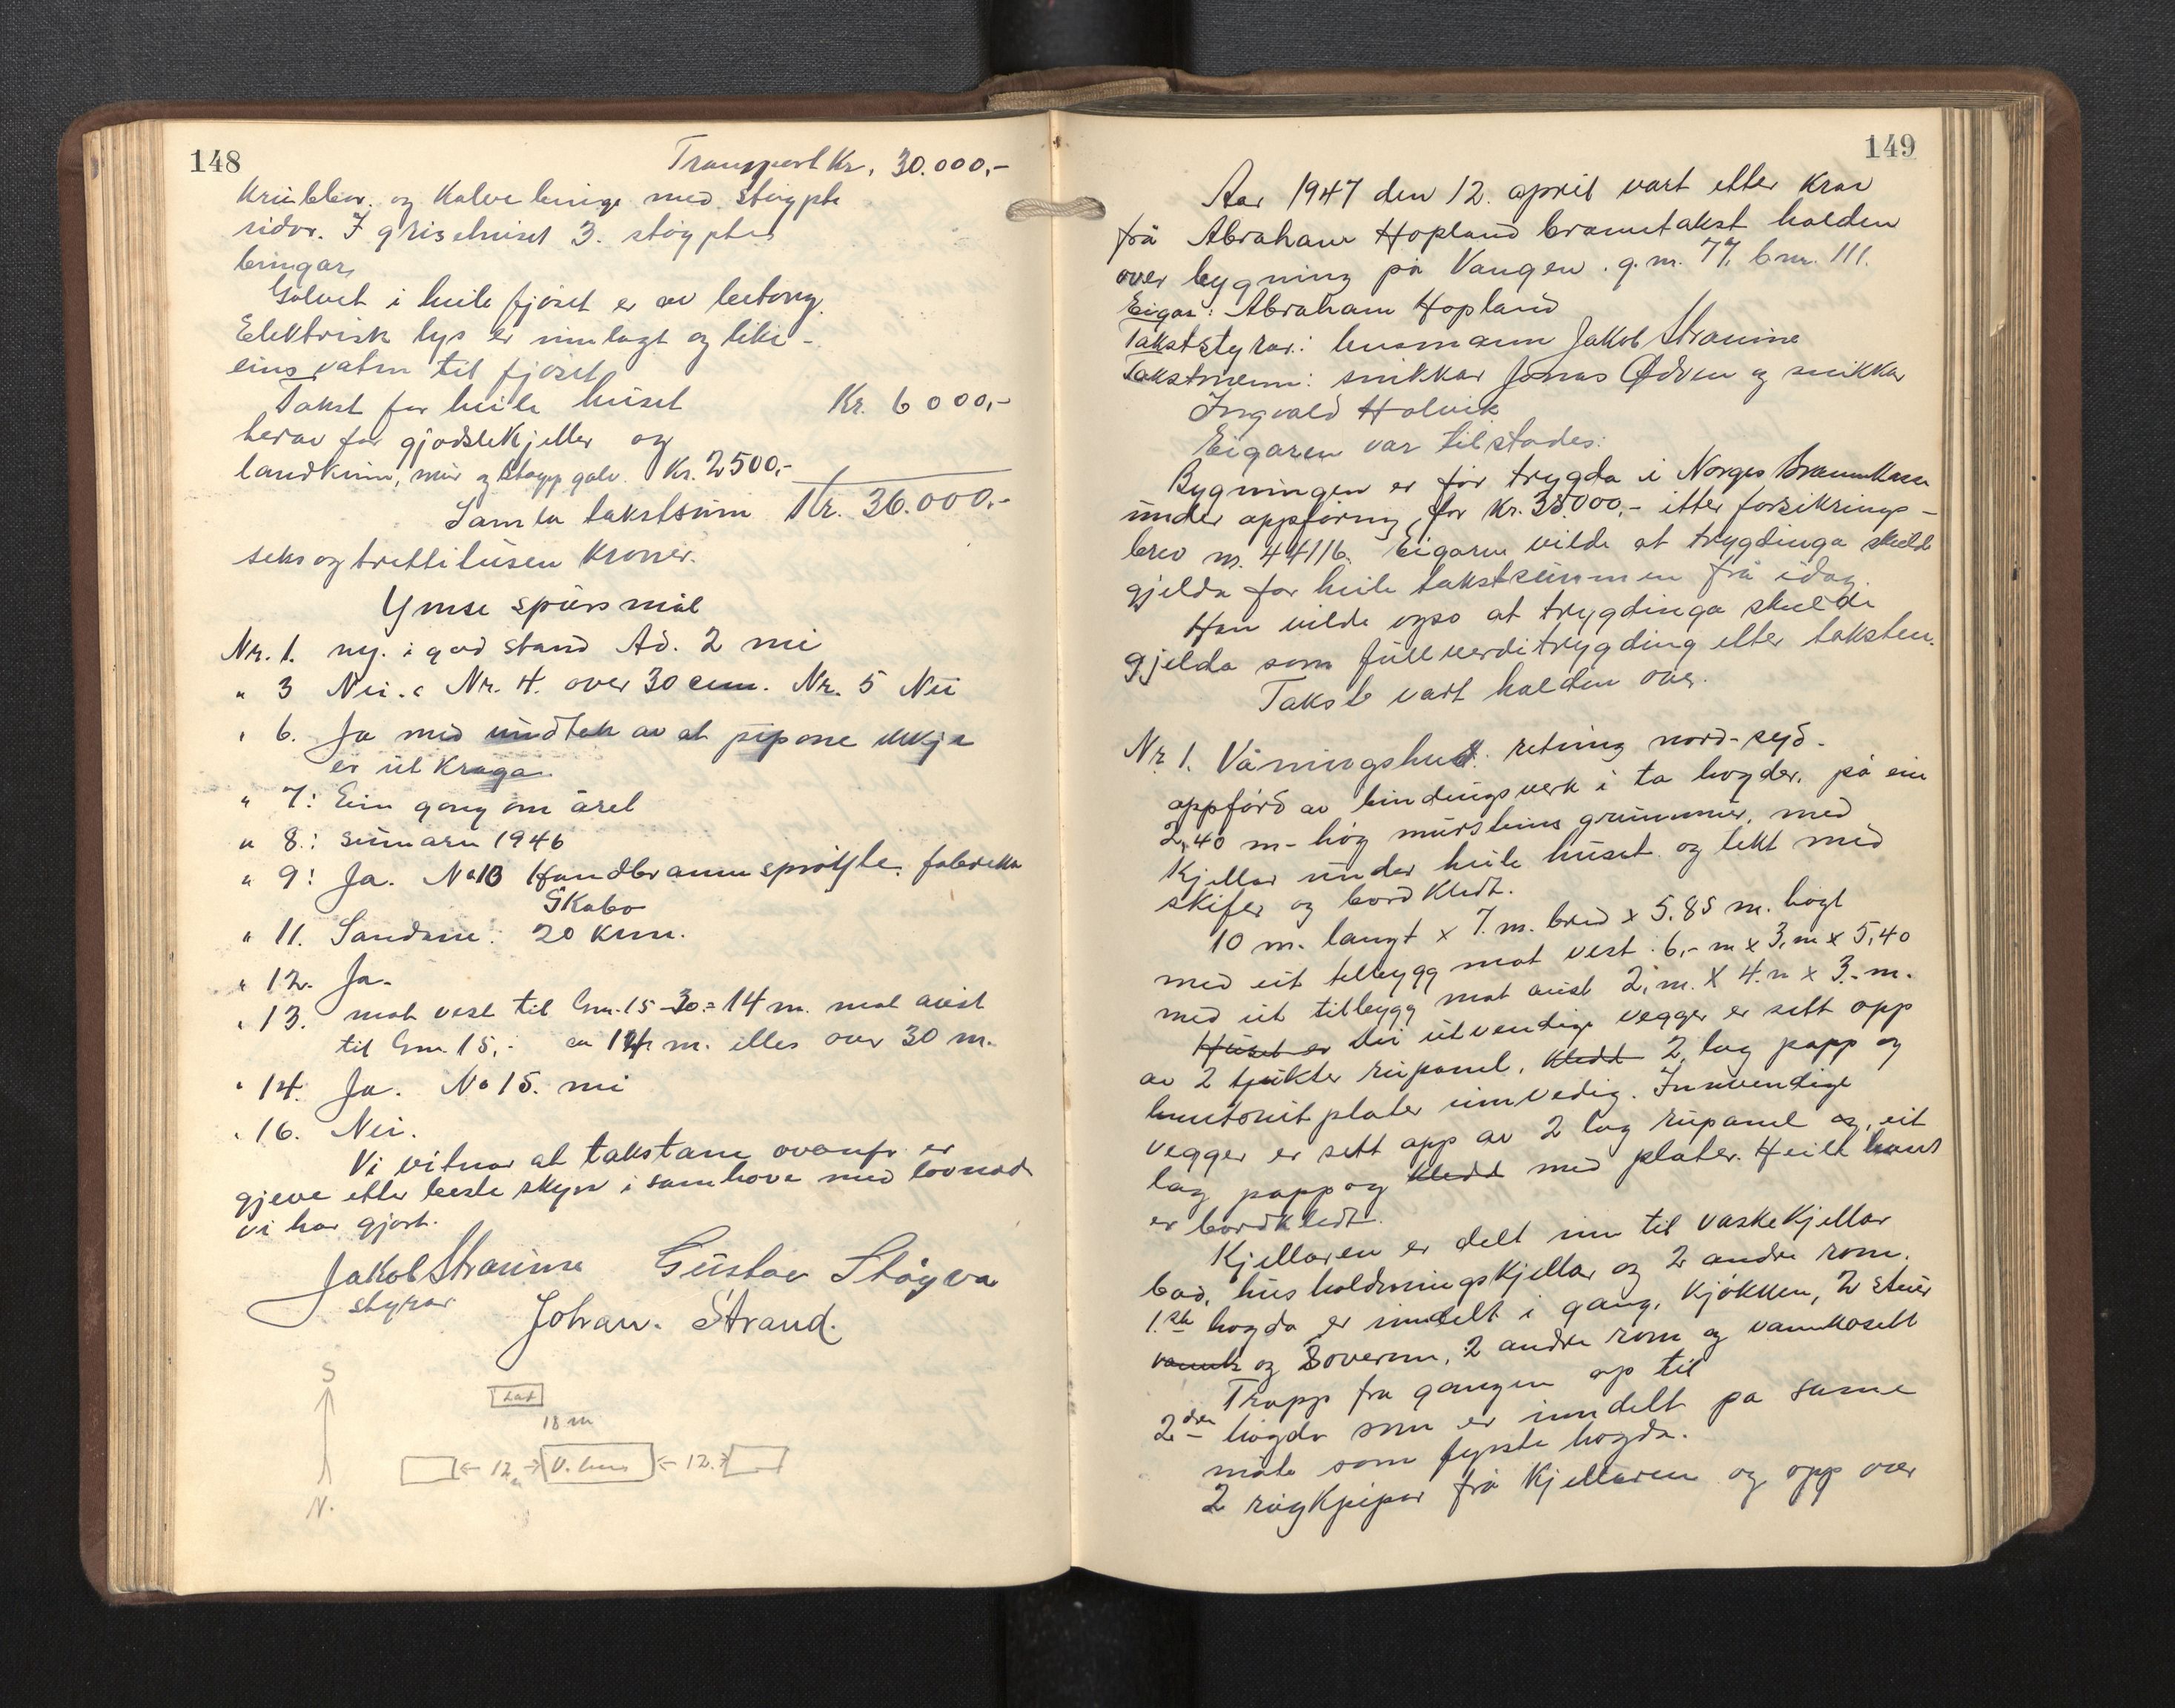 148
Transport Kr. 30.000,-
Krübbor. og Kalve binge med støypte
sidor. I grisehuset 3. støypte
bingar,
Golvet i heile fjöset er av betong.
Elektrisk lys er innlagt og like-
eins vatn til fjöset
Takst for heile huset Kr. 6000,-
herav for gjødslekjeller og
landkinn, mur og støyp golv. Kr. 2500,-
Samla takstsum Kr. 36.000,-
seks og trettitusen Kroner.
Ymse spürsmål
Nr. 1. ny. i god stand Ad. 2 nei
" 3 Nei. Nr. 4. over 30 cm. Nr. 5 Nei
" 6. Ja med undtak av at pipone ikkje
er ut kraga
" 7: Ein gang om året
" 8.: sumaren 1946
" 9: Ja. No 10 Handbrannsprøyte. fabrikk
Skabo
" 11. Sandane: 20 km.
" 12. Ja.
" 13. mot vest til bnr. 15 - 30 = 14 m. mot aust
til bnr. 15,- ca 14 m. elles over 30 m.
" 14. Ja. No 15. nei
" 16. Nei.
Vi vitnar at takstane ovanfor er
gjeve etter beste skyn i samhøve med lovnad
vi har gjort.
Jakob Straume Gustav Støyva
styrar Johan. Strand.
S
18 m
12 m V. hus 12.
N.
149
Aar 1947 den 12. april vart etter krav
frå Abraham Hopland branntakst halden
over bygning på Vangen. g.nr. 77. bnr. 111.
Eigar: Abraham Hopland
Takststyrar: Jakob Straume
Takstmenn: snikkar Jonas Ødven og snikkar
Ingvald Holvik
Eigaren var tilstades:
Bygningen er før trygda i Norges Brannkasse
under oppføring, for Kr. 38.000,- etter forsikrings-
brev nr. 44116. Eigaren vilde at trygdinga skulde
gjelda for heile takstsummen frå idag.
Han vilde ogso at trygdinga skulde
gjelda som fullverditrygding etter taksten.
Takst vart halden over.
Nr. 1. Våningshus. retning nord-syd.
oppførd av bindingsverk i to høgder, på ein
2,40 m- høg mursteins grunnmur, med
Kjellar under heile huset og tekt med
skifer og bordkledt.
10 m. langt x 7. m. bred x 5.85 m. høgt
med eit tilbygg mot vest 6,- m x 3, m x 5,40
med eit tilbygg mot aust 2,m. x 4. m x 3.- m.
Huset er Dei utvendige vegger er sett opp
av 2 tjukter rupanel, kledd 2 lag papp og
huntonit plater innvedig. Innvendige
vegger er sett opp av 2 lag rupanel og, eit
lag papp og kledd med plater. Heile huset
er bordkledt.
Kjellaren er delt inn til vaskekjellar
bad, husholdningskjellar og 2 andre rom.
1.ste høgda er inndelt i gang, kjøkken, 2 stuer
og Soverom, 2 andre rom og vannklosett
Trapp fra gangen op til
2den høgda som er inndelt på same
måte som fyrste høgda.
2 røykpipor frå Kjellaren og opp over